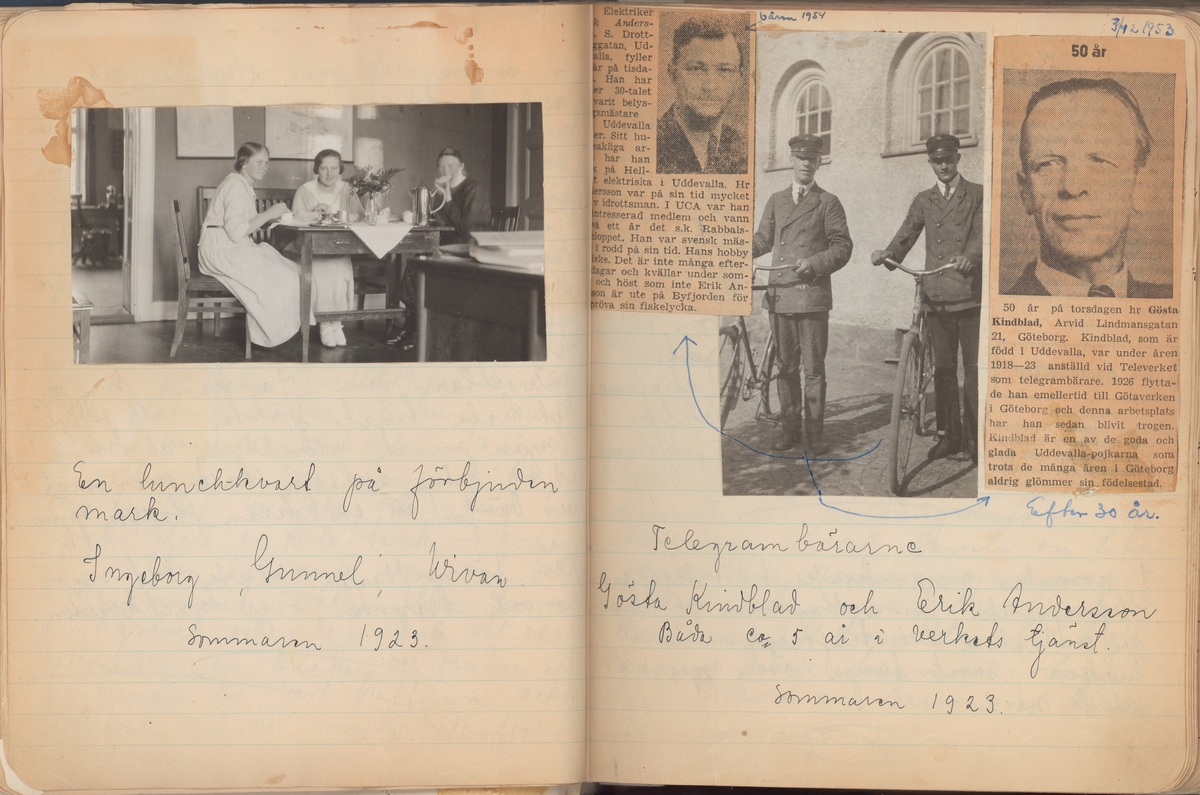 En lunchkvart på förbjuden
mark.
Ingeborg, Gunnel, Wivan
Sommaren 1923.
Elektriker
k Anders-
, S. Drott-
ggatan, Ud-
alla, fyller
år på tisda-
. Han har
er 30-talet
varit belys-
gsmästare
Uddevalla
er. Sitt hu-
sakliga ar-
har han
t på Hell-
t elektriska i Uddevalla. Hr
dersson var på sin tid mycket
v idrottsman. I UCA var han
intresserad medlem och vann
å ett år det s.k. Rabbals-
loppet. Han var svensk mäs-
i rodd på sin tid. Hans hobby
iske. Det är inte många efter-
dagar och kvällar under som-
och höst som inte Erik An-
son är ute på Byfjorden för
pröva sin fiskelycka.
1954
3/12 1953
50 år
50 år på torsdagen hr Gösta
Kindblad, Arvid Lindmansgatan
21, Göteborg. Kindblad, som är
född i Uddevalla, var under åren
1918—23 anställd vid Televerket
som telegrambärare. 1926 flytta-
de han emellertid till Götaverken
i Göteborg och denna arbetsplats
har han sedan blivit trogen.
Kindblad är en av de goda och
glada Uddevalla-pojkarna som
trots de många åren i Göteborg
aldrig glömmer sin födelsestad.
Efter 30 år.
Telegrambärarne
Gösta Kindblad och Erik Andersson
Båda ca 5 år i verkets tjänst.
Sommaren 1923.